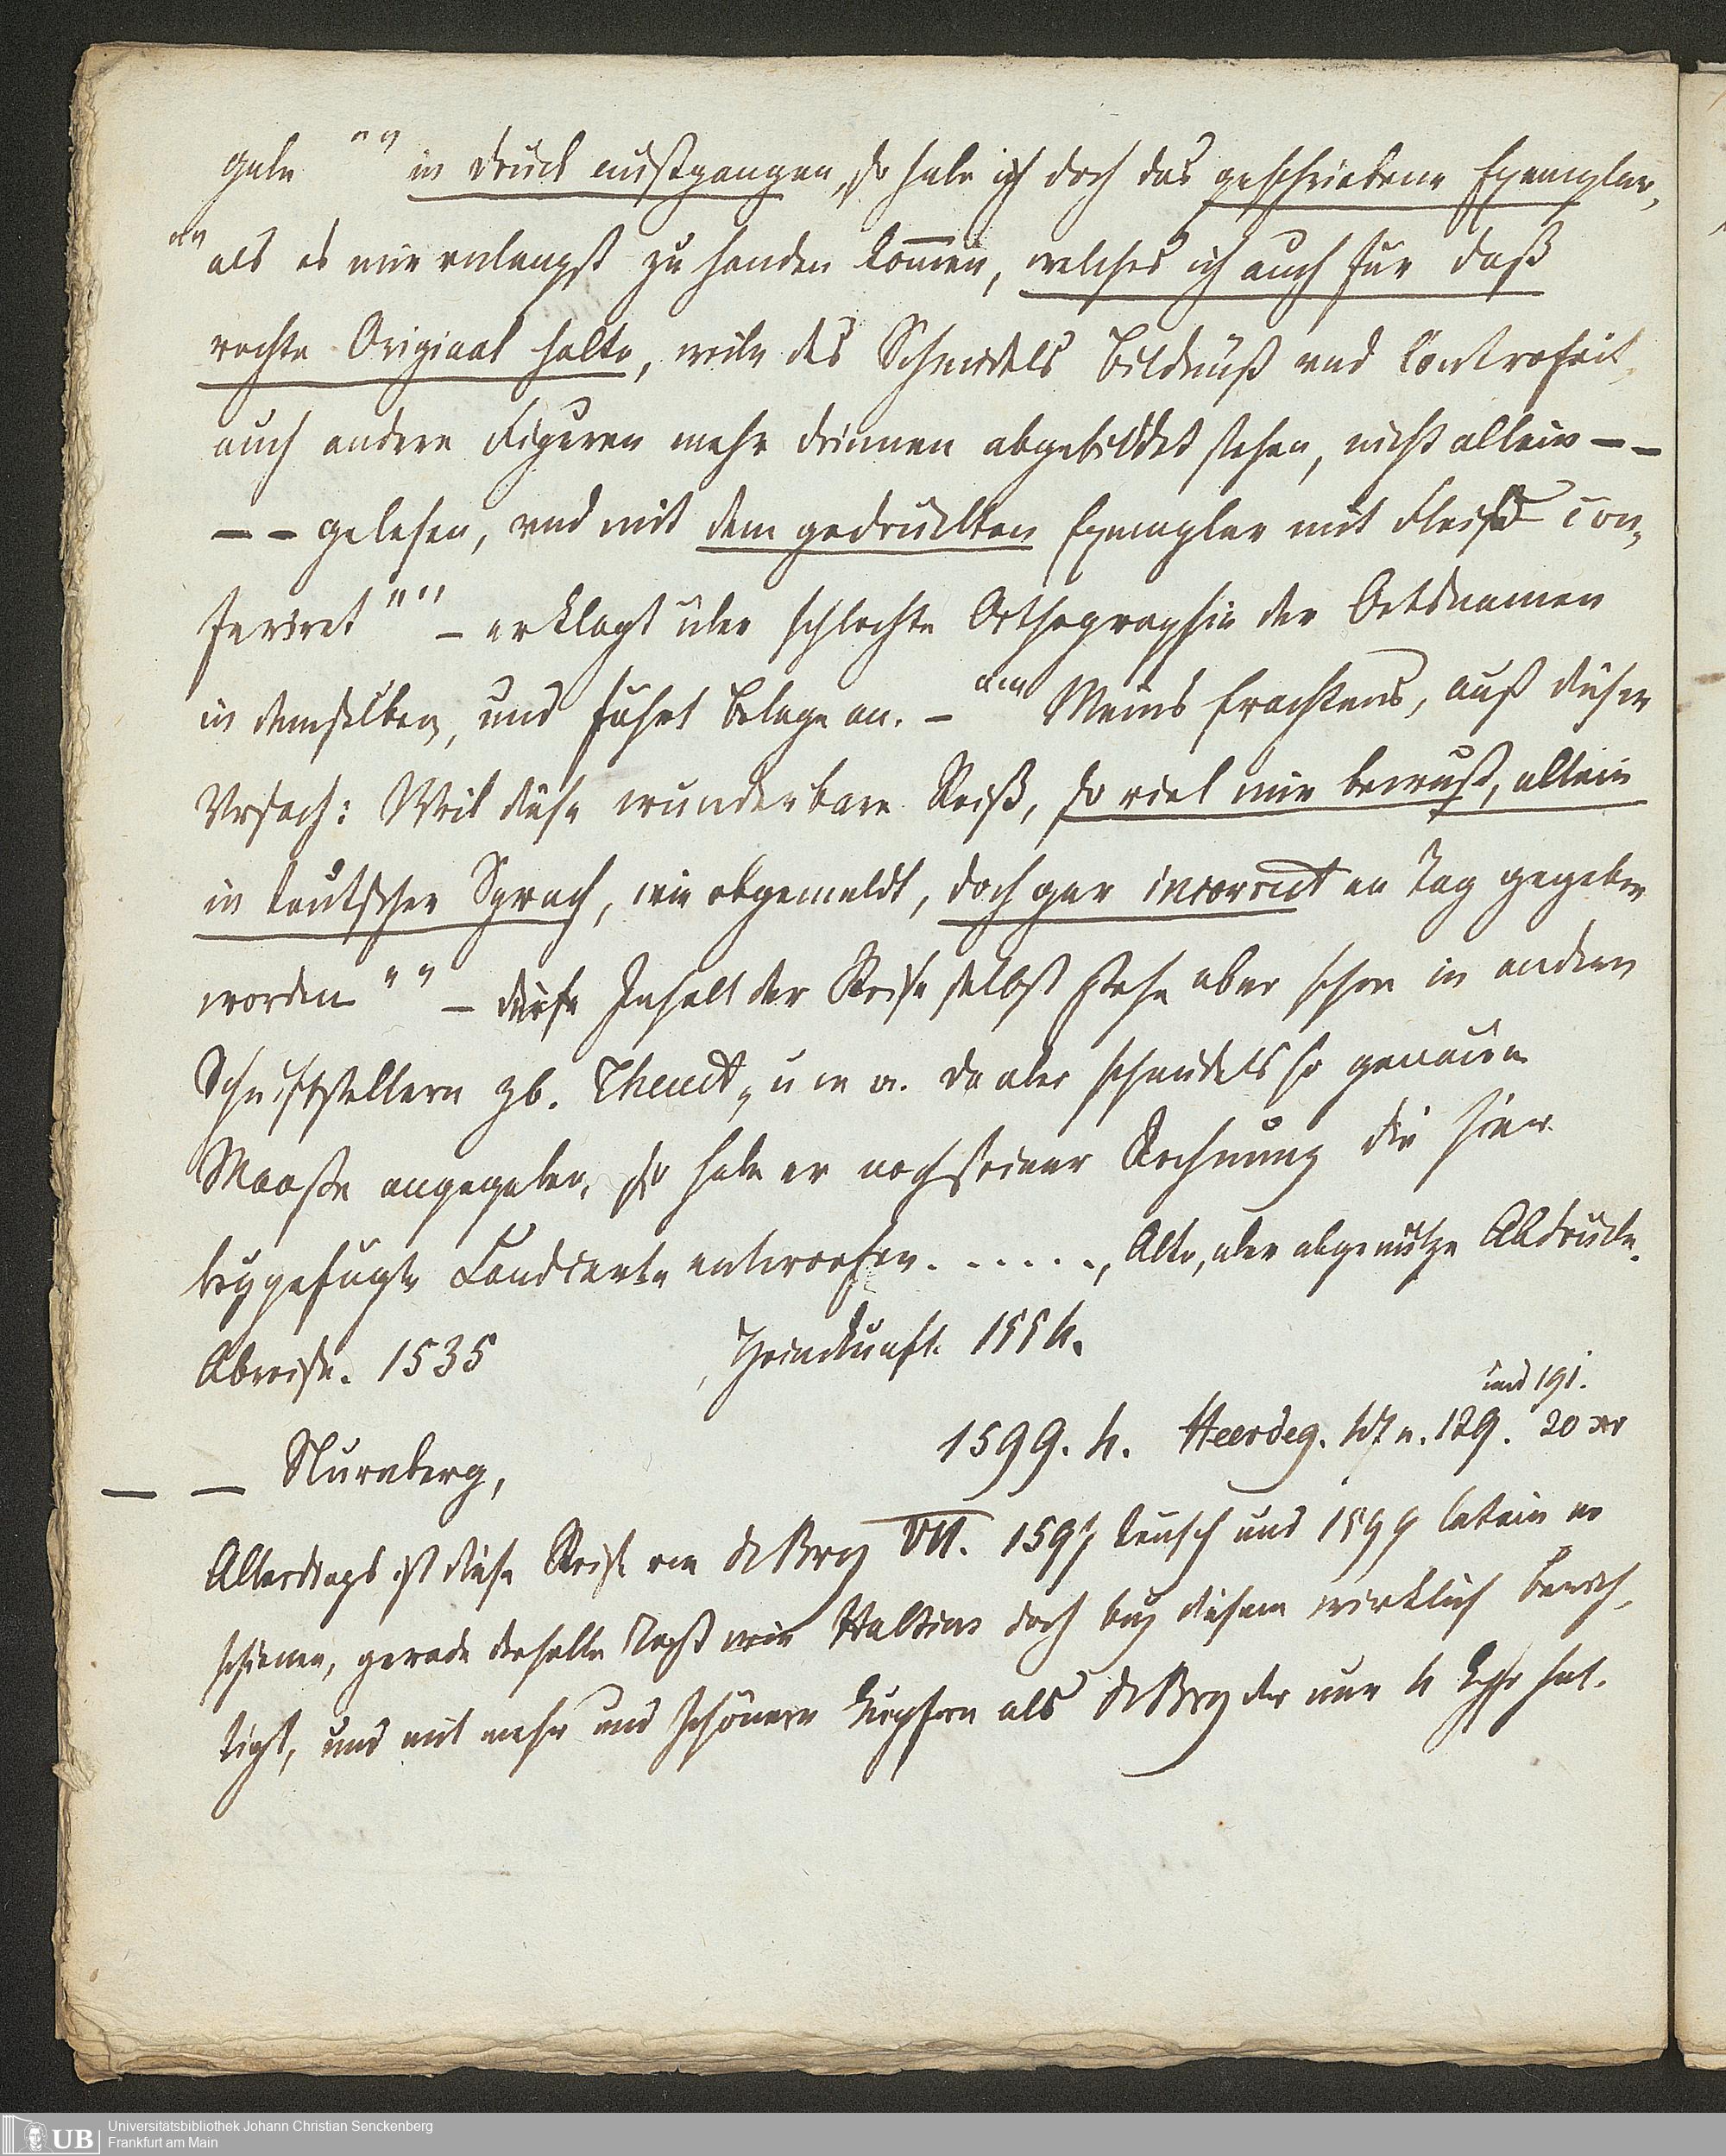 gabe "" in Druck außgangen, so habe ich doch das geschriebene Exemplar,
"" als es mir vnlangst zu handen kom̅en, welches ich auch für daß
rechte Original halte, weiln des Schmidels Bildnuß vnd Contrafeit
auch andere Figuren mehr drinnen abgebildet stehen, nicht allein – –
– – gelesen, vnd mit dem gedruckten Exemplar mit Fleiß con„
feriret "" – er klagt über schlechte Orthographie der Ortsnamen
in demselben, und führt Belege an. – "" Meins Erachtens, auß dieser
Vrsach: Weil diese wunderbare Reiß, so viel mir bewust, allein
in teutscher Sprach, wie obgemeldt, doch gar incorrect an Tag gegeben
worden "" – diese Inhalt der Reise selbst stehe aber schon in andern
Schriftstellern zb. Thevet, u m a. da aber Schmidels so genauen
Maaße angegeben, so habe er nach seiner Rechnung die hier
beygefügte Landcarte entworfen. . . . . . , Alte, aber abgenutzte Abdrücke.
Abreise. 1535 , Heimkunft 1554.
und 191.
– – Nurnberg, 1599. 4. Heerdeg. n. 129. 20 xr
Allerdings ist diese Reise von de Bry VII. 1597 teusch und 1599 latein er
schienen, gerade derselbe Text wie Hulsius doch bey diesem wirklich berich„
tigt, und mit mehr und schönern Kupfern als de Bry der nur 4 Kpfr hat.
Universitätsbibliothek Johann Christian Senckenberg
Frankfurt am Main
UB